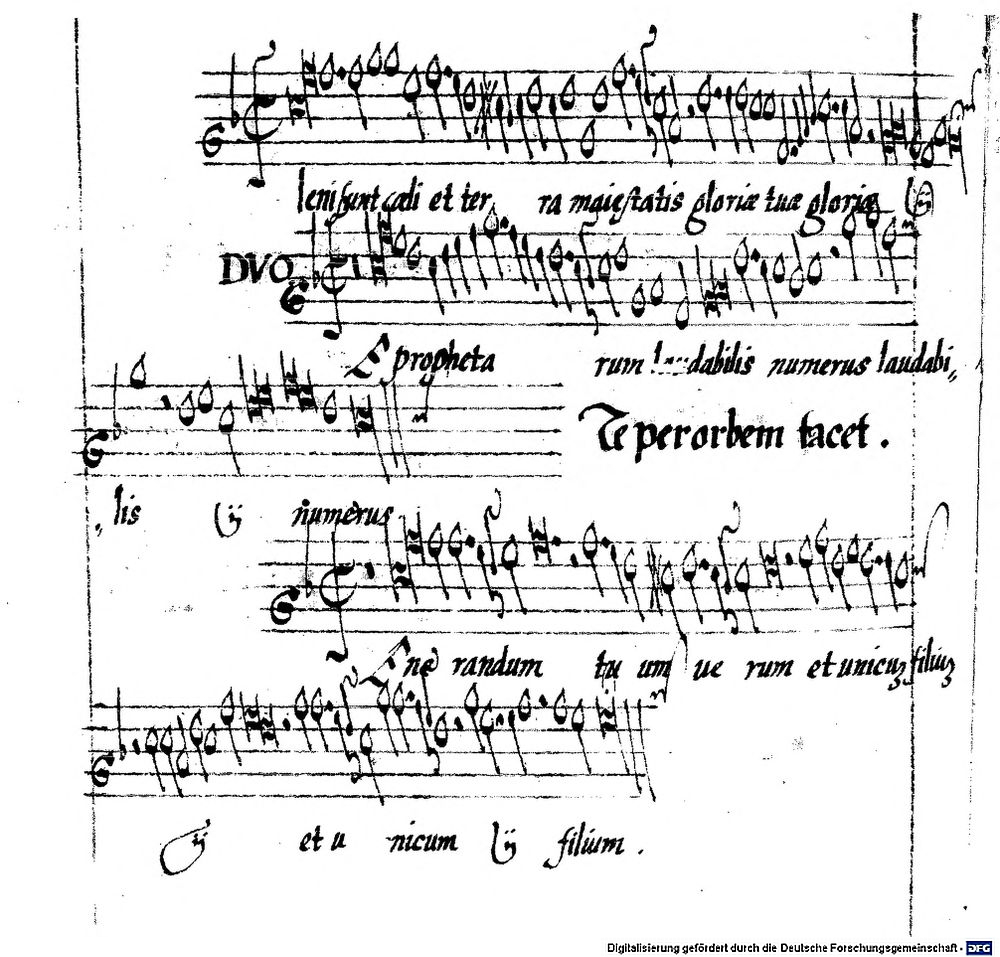 leni sunt cœli et ter ra maiestatis gloriæ tuæ gloriæ ij
DVO
E propheta rum laudabilis numerus laudabi„
„lis ij numerus
Te per orbem tacet .
E ne randum tu um ue rum et unicuʒ filiuʒ
ij et u nicum ij filium .
Digitalisierung gefördert durch die Deutsche Forschungsgemeinschaft - DFG